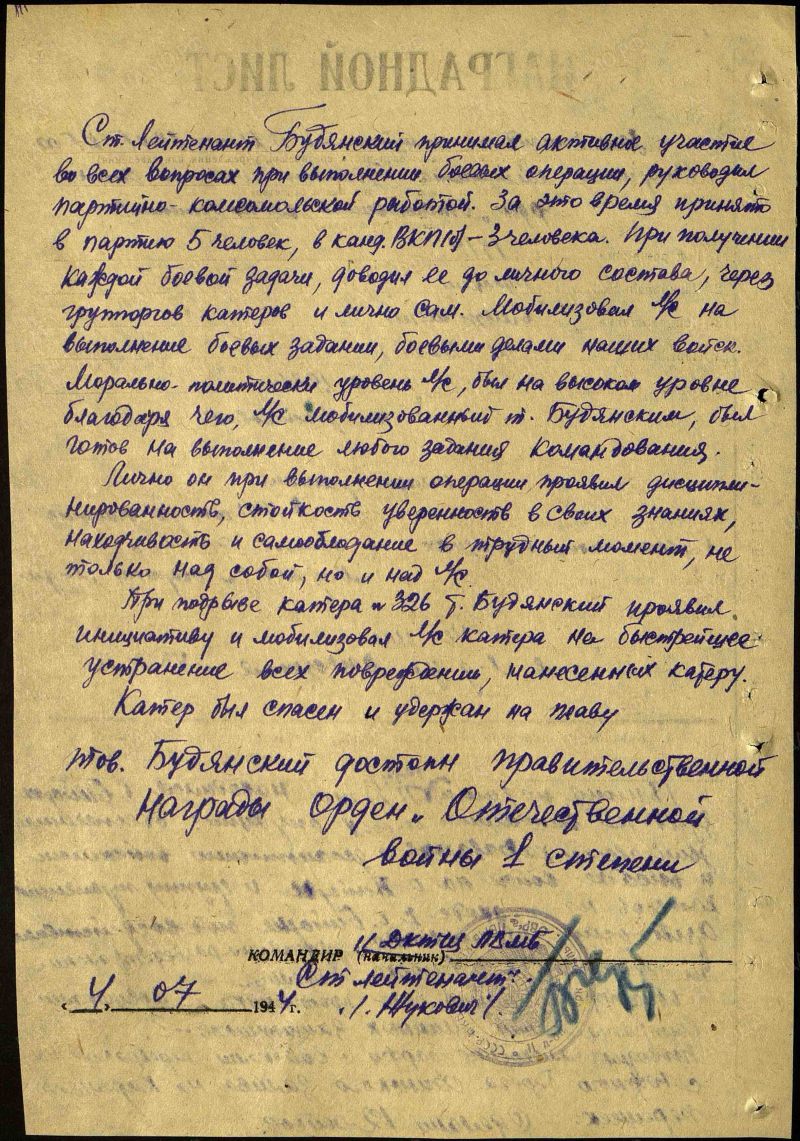 Ст. лейтенант Будянский принимал активное участие
во всех вопросах при выполнении боевых операции, руководил
партийно-комсомольской работой. За это время принято
в партию 5 человек, в канд. ВКП(б) - 3 человека. При получении
каждой боевой задачи, доводил ее до личного состава, через
группоргов катеров и лично сам. Мобилизовал л/с на
выполнение боевых задании, боевыми делами наших войск.
Морально-политически уровень л/с, был на высоком уровне
благодаря чего, л/с мобилизованный т. Будянским, был
готов на выполнение любого задания командования.
Лично он при выполнении операции проявил дисципли-
нированность, стойкость уверенность в своих знаниях,
находчивость и самообладание в трудный момент, не
только над собой, но и над л/с.
При подрыве катера № 326 т. Будянский проявил
инициативу и мобилизовал л/с катера на быстрейшее
устранение всех повреждении, нанесенных катеру.
Катер был спасен и удержан на плаву
тов. Будянский достоин правительственной
награды орден „Отечественной
войны 1 степени
КОМАНДИР (начальник)
Ст лейтенант
„4" 07 1944 г. /Жукович/.
НАГРАДНОЙ ЛИСТ